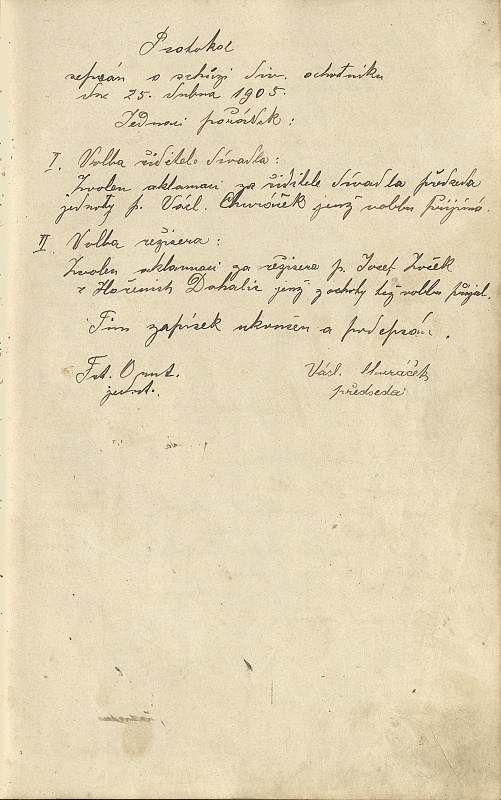 Protokol
sepsán o schůzi div. ochotníku
dne 25. dubna 1905.
Jednací pořádek:
I. Volba ředitele divadla:
Zvolen aklamací za ředitele divadla předseda
jednoty p. Václ. Churáček jenž volbu přijímá.
II. Volba režisera:
Zvolen aklamací za režisera p. Josef Zvěk
z Hořeních Dohalic jenž z ochoty též volbu přijal.
Tím zápisek ukončen a podepsán.
Frt.
jednat.
Václ. Churáček
předseda